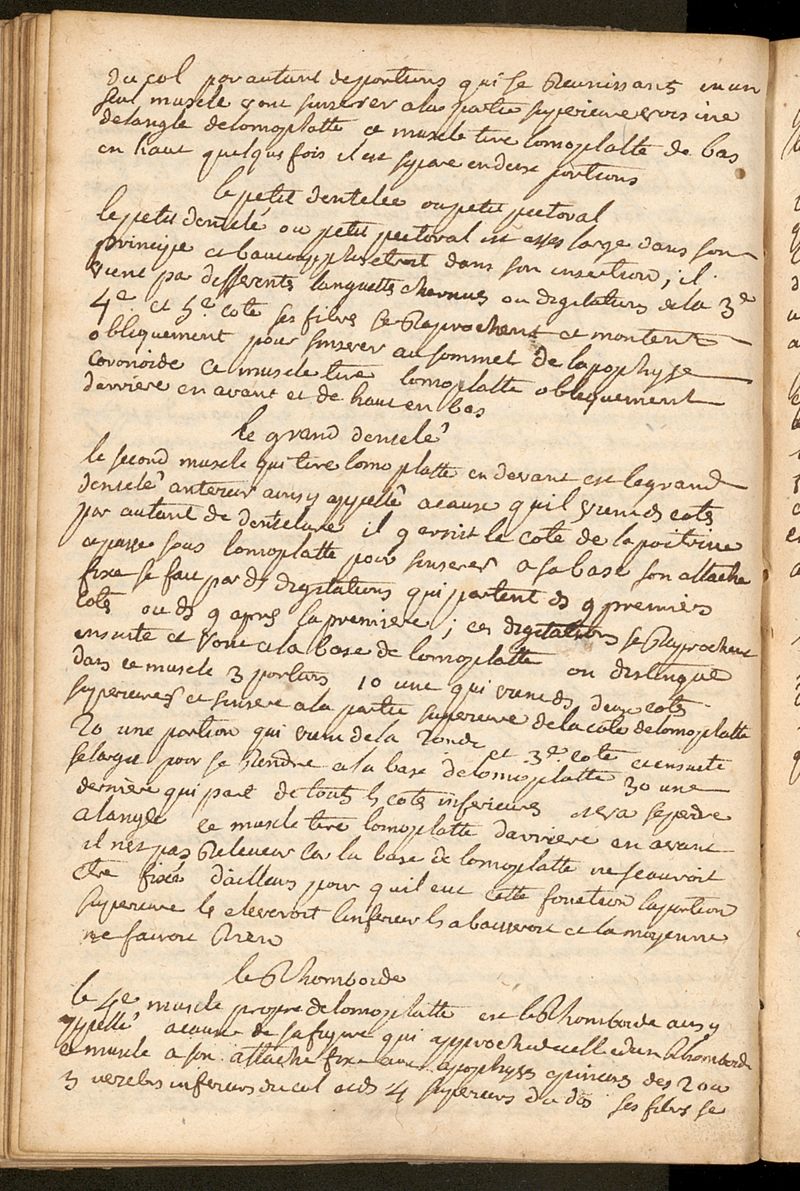 du col par autant de portions qui se Reunissant en un
seul muscle vont sinserer a la partie superieure voisine
de langle de lomoplatte ce muscle tire lomoplatte de bas
en haut quelqusfois il est separé en deux portions
le petit dentelée ou petit pectoral
le petit dentelé ou petit pectoral est assez large dans son
principe et beaucoup plus etroit dans son insertion ; il
vient par differents languettes charnues ou digitations de la 3e
4e et 5e cote ses fibres se Raprochent et montent
obliquement pour sinserer au sommet de lapophyse
coronoide ce muscle tire lomoplatte obliquement
darriere en avant et de haut en bas
le grand dentelé
le second muscle qui tire lomoplatte en devant est le grand
dentelé anterieur ainsy appellé a cause quil vient ds cots
par autant de dentelure il garnit le coté de la poitrine
et passe sous lomoplatte pour sinserer a sa base son attache
fixe se fait par ds digitations qui partent ds 9 premiers
cots ou ds 9 aprs la premiere ; ces digitations se Raprochent
ensuite et vont a la base de lomoplatte on distingue
dans ce muscle 3 portions 1o une qui vient ds deux cots
superieures et sinsere a la partie superieure de la cote de lomoplatte
2o une portion qui vient de la 2onde et 3e cote et ensuite
selargit pour se Rendre a la base de lomoplatte 3o une
derniere qui part de touts ls cots inferieures se perdre
a langle ce muscle tire lomoplatte darriere en avant
il nest pas Releveur car la base de lomoplatte ne scauroit
etre fixée dailleurs pour quil eut cette fonction la portion
superieure la eleveroit linferieur la abaisseroit et la moyenne
ne fairoit Rien
le Rhomboide
le 4e muscle propre de lomoplatte est le Rhomboide ainsy
appellé a cause de sa figure qui approche de celle dun Rhomboide
ce muscle a son attache fixe aux apophyses epineuses des 2 ou
3 vertebrs inferieurs du col et ds 4 superieurs du dos ses fibrs se